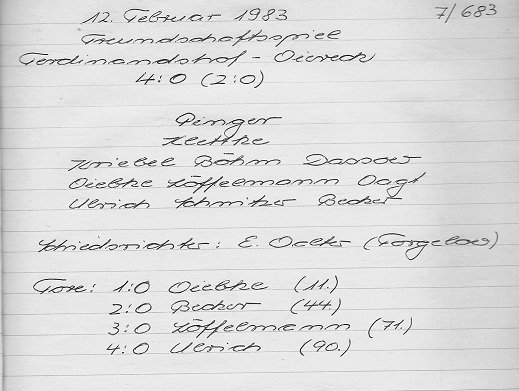 12. Februar 1983 7/683
Freundschaftsspiel
Ferdinandshof - Viereck
4:0 (2:0)
Kriebel Böhm Dassow
Viebke Löffelmann Vagt
Ulrich Schnitzer Becker
Schiedsrichter: E. (Torgelow)
Tore: 1:0 Viebke (11.)
2:0 Becker (44.)
3:0 Löffelmann (71.)
4:0 Ulrich (90.)